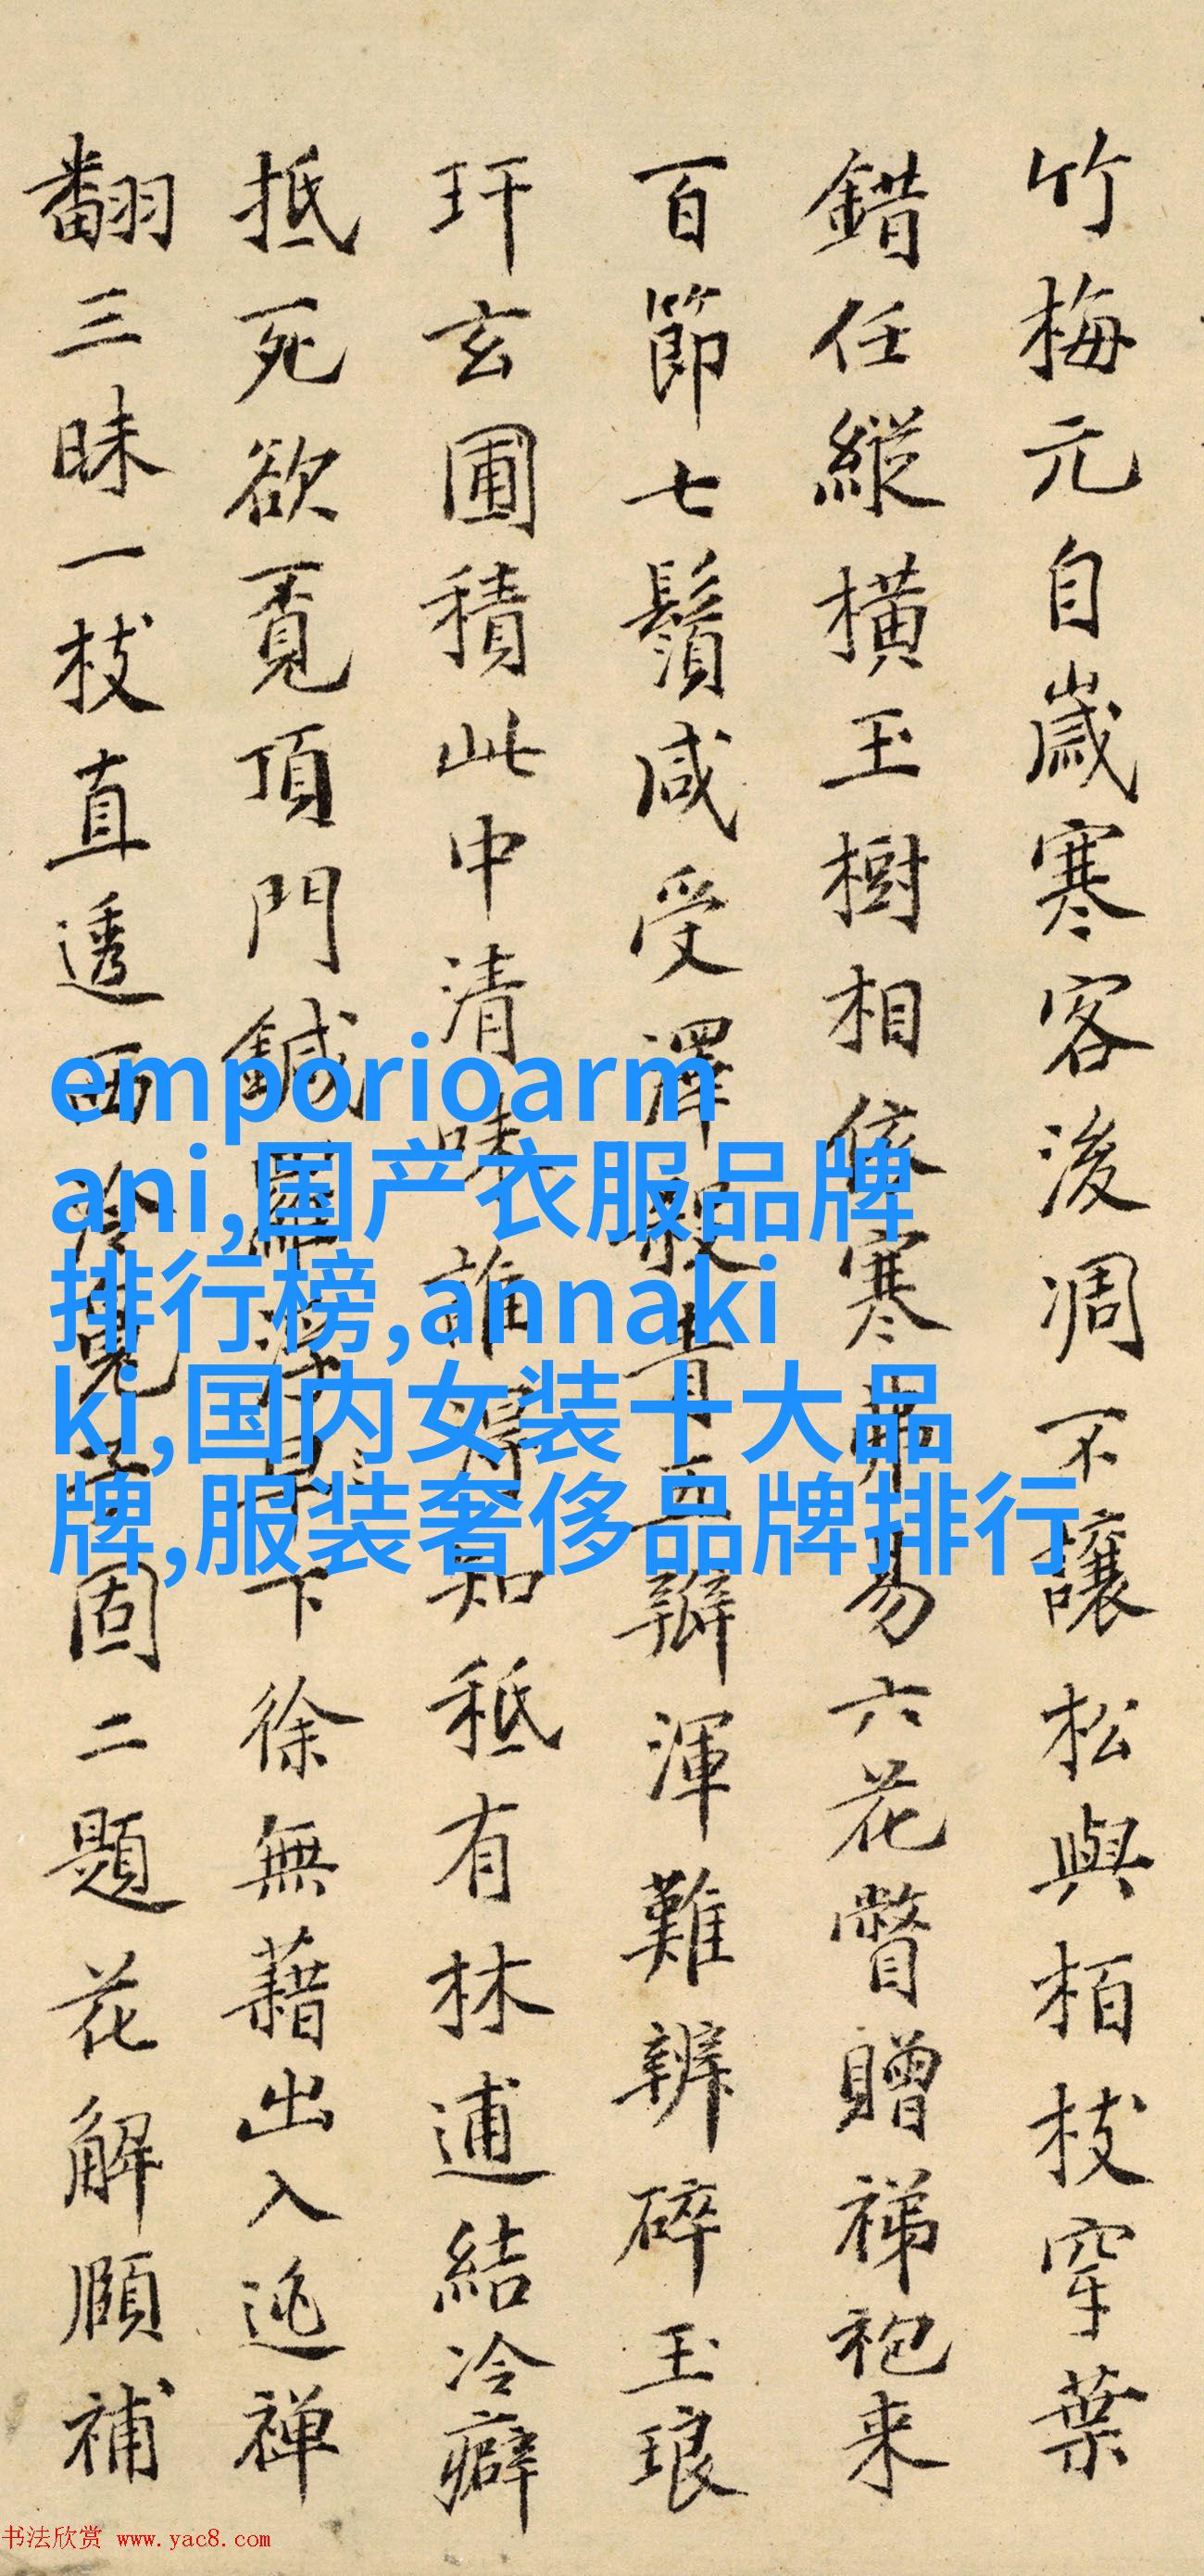 竹梅元自歲寒客後凋不讓松與栢枝穿葉
錯任縱橫玉樹相依寒弗易六花瞥贈祶袍来
百節七鬚咸受澤殺青五辦渾難辨碎玉琅
玕玄圃積此中清味誰得知秪有林逋結冷癖
抵死欲覔頂門鍼下徐無藉出入逃禅
翻三昧一枝直透西冷固二題花解頤補
emporioarm
ani,国产衣服品牌
排行榜,annaki
ki,国内女装十大品
牌,服装奢侈品牌排行
书法欣赏 www.yac8.com